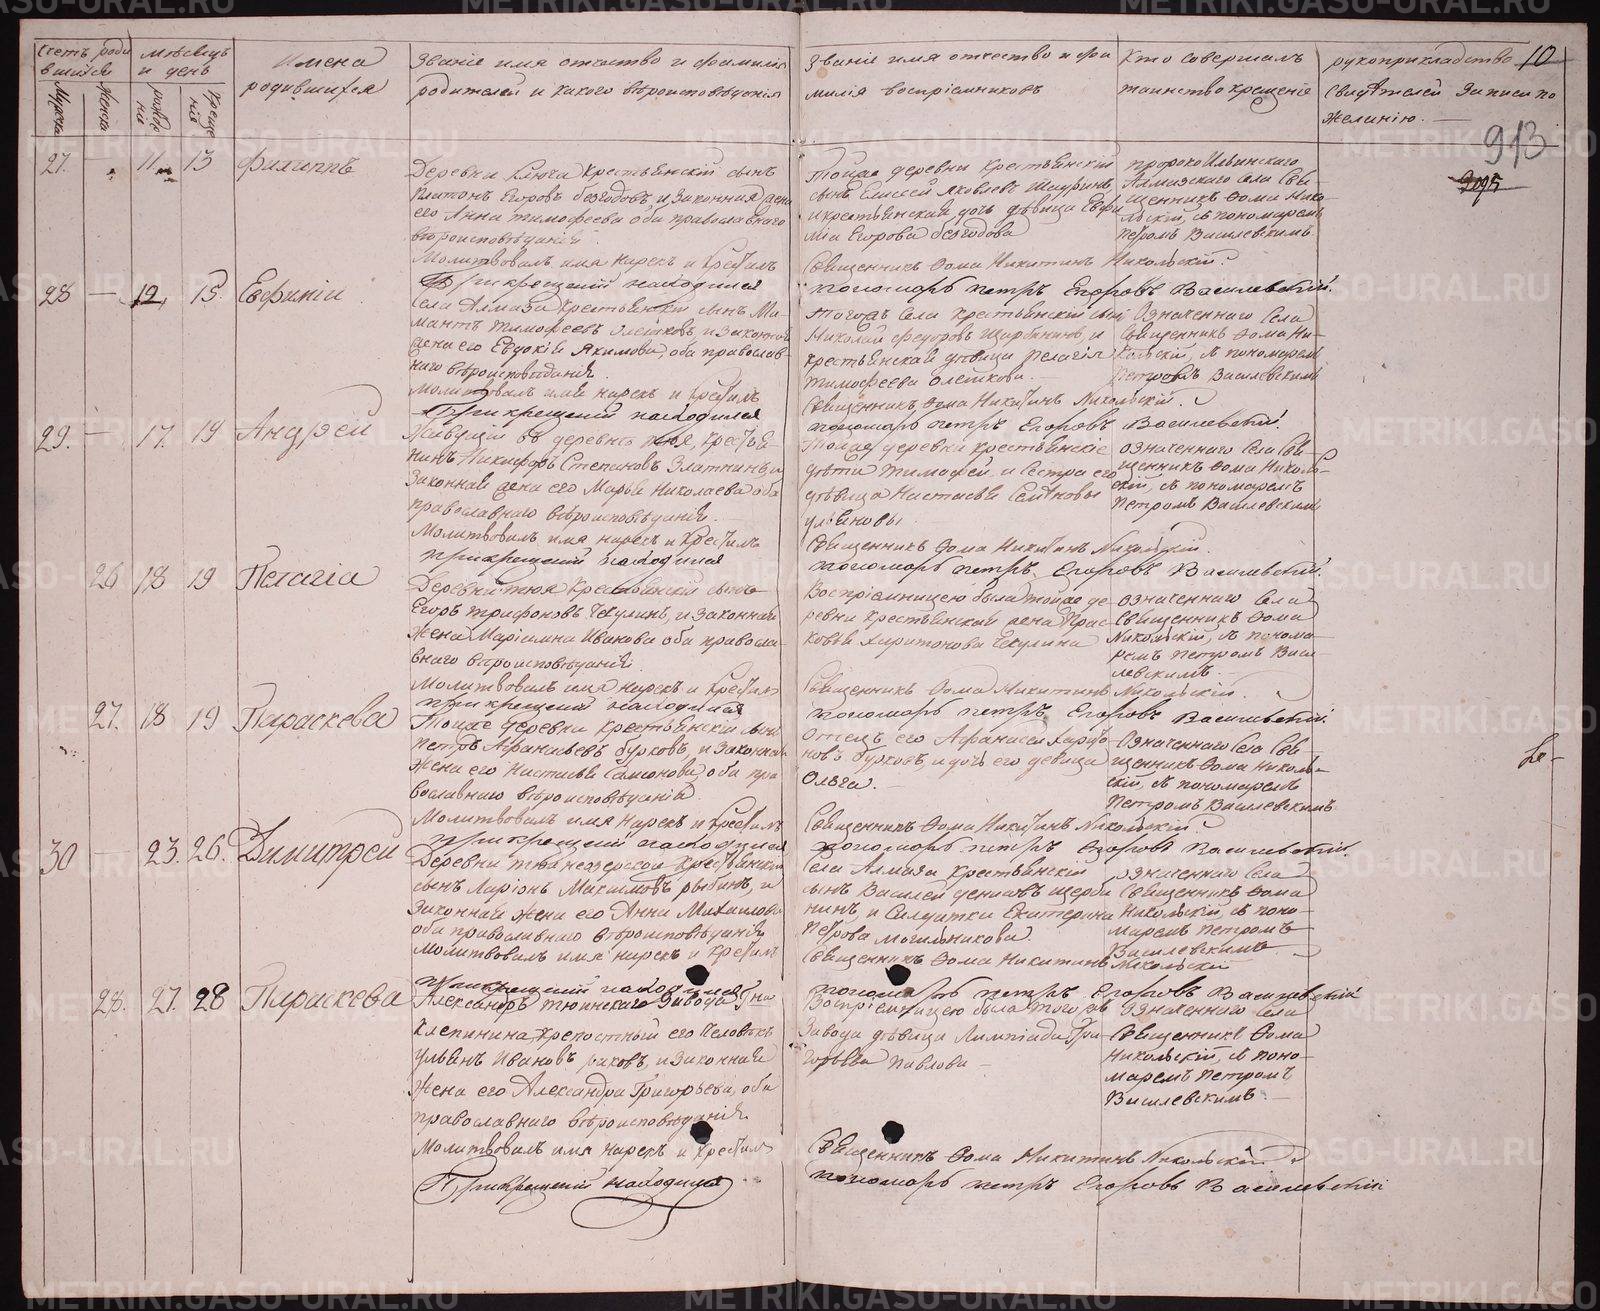 Счетъ роди
вшихся
Мужска
Женска
Мѣсяцъ
и день
рожде
ніе
креще
ніе
Имена
родившихся
Званіе имя отчество и фамилія
родителей и какого вѣроисповѣданія
Званіе имя отчество и фа
милія воспріемниковъ
Кто совершалъ
таинство крещенія
рукоприкладство
Свидѣтелей записи по
желанію.
10
913
27. — 11 13 Филиппъ
Деревни Ключа Крестьянскій сынъ
Платонъ Егоровъ безгодовъ, и законная жена
его Анна тимофеева оба православнаго
вѣроисповѣданія.
Молитвовалъ имя нарекъ и крестилъ
При крещеніи находился
Тойже деревни крестьянскій
сынъ Елисей Яковлевъ
и крестьянская дочь дѣвица Евфи
мія Егорова безгодова
Священникъ Фома Никитинъ Никольскій.
пономарь петръ Егоровъ Василевскій.
пророко Ильинскаго
Алмазскаго села Свя
щенникъ Фома Нико
льскій, съ пономаремъ
Петромъ Василевскимъ
28 — 12 15. Евфимій
Села Алмаза крестьянскій сынъ Ма
мантъ тимофеевъ Олешковъ, и законная
жена его Евдокія Якимова, оба православ
наго вѣроисповѣданія.
Молитвовалъ имя нарекъ и крестилъ
При крещеніи находился
Тогожъ Села крестьянскій сынъ
Николай федоровъ Щербининъ, и
крестьянская дѣвица пелагія
тимофеева Олешкова. —
Священникъ Фома Никитинъ Никольскій.
пономарь петръ Егоровъ Василевскій.
Означеннаго Села
Священникъ Фома Ни
кольскій, съ пономаремъ
Петромъ Василевскимъ
29. — 17. 19 Андрей
Живущій въ деревнѣ тюя, крестья
нинъ Никифоръ Степановъ Златнинъ, и
Законная жена его Марья Николаева оба
православнаго вѣроисповѣданія.
Молитвовалъ имя нарекъ и крестилъ
При крещеніи находился
Тойже деревни крестьянскіе
дѣти тимофей и Сестра его
дѣвица Настасья Семеновы
ульяновы
Священникъ Фома Никитинъ Никольскій.
пономарь петръ Егоровъ Василевскій.
означеннаго Села Свя
щенникъ Фома Николь
скій, съ пономаремъ
Петромъ Василевскимъ
26 18 19 Пелагіа
Деревни тюя Крестьянскій сынъ
Егоръ трифоновъ Чекулинъ, и законная
жена Маріамна Иванова оба правосла
внаго вѣроисповѣданія
Молитвовалъ имя нарекъ и крестилъ
При крещеніи находился
Воспріемницею была тойже де
ревни крестьянская жена Прас
ковья Харитонова Чекулина
Священникъ Фома Никитинъ Никольскій.
пономарь петръ Егоровъ Василевскій.
означеннаго Села
Священникъ Фома
Никольскій, съ понома
ремъ петромъ Васи
левскимъ.
27. 18 19 Параскева
Тойже деревни крестьянскій сынъ
Петръ Афанасьевъ бурковъ, и законная
жена его Настасья Самсонова, оба пра
вославнаго вѣроисповѣданія.
Молитвовалъ имя нарекъ и крестилъ
При крещеніи находился
Отецъ его Афанасей Харито
новъ бурковъ, и дочь его девица
Ольга.
Священникъ Фома Никитинъ Никольскій.
пономарь петръ Егоровъ Василевскій.
Означеннаго Села Свя
щенникъ Фома Николь
скій, съ пономаремъ
Петромъ Василевскимъ
30 — 23. 26. Димитрей
Деревни тюинеозерской Крестьянской
сынъ Ларіонъ Максимовъ рыбинъ, и
Законная жена его Анна Михаилова
оба православнаго вѣроисповѣданія
Молитвовалъ имя нарекъ и крестилъ
При крещеніи находился
Села Алмаза крестьянскій
сынъ Василей денисовъ щерби
нинъ, и Салдатка Екатерина
Петрова Могильникова.
Священникъ Фома Никитинъ Никольскій
пономарь петръ Егоровъ Василевскій
означеннаго Села
Священникъ Фома
Никольскій, съ поно
маремъ петромъ
Василевскимъ
28. 27. 28 Параскева
Александръ тюинскаго Завода Гна
Клепинина Крепостный его Человѣкъ
ульянъ Ивановъ раковъ, и законная
жена его Александра Григорьева, оба
православнаго вѣроисповѣданія.
Молитвовалъ имя нарекъ и крестилъ
При крещеніи находился
Воспріемницею была тогожъ
Завода дѣвица Лимпіада Гри
горьева Павлова —
Священникъ Фома Никитинъ Никольскій
пономарь петръ Егоровъ Василевскій
Означеннаго Села
Священникъ Фома
Никольскій, съ поно
маремъ Петромъ
Василевскимъ. —
METRIKI.GASO-URAL.RU